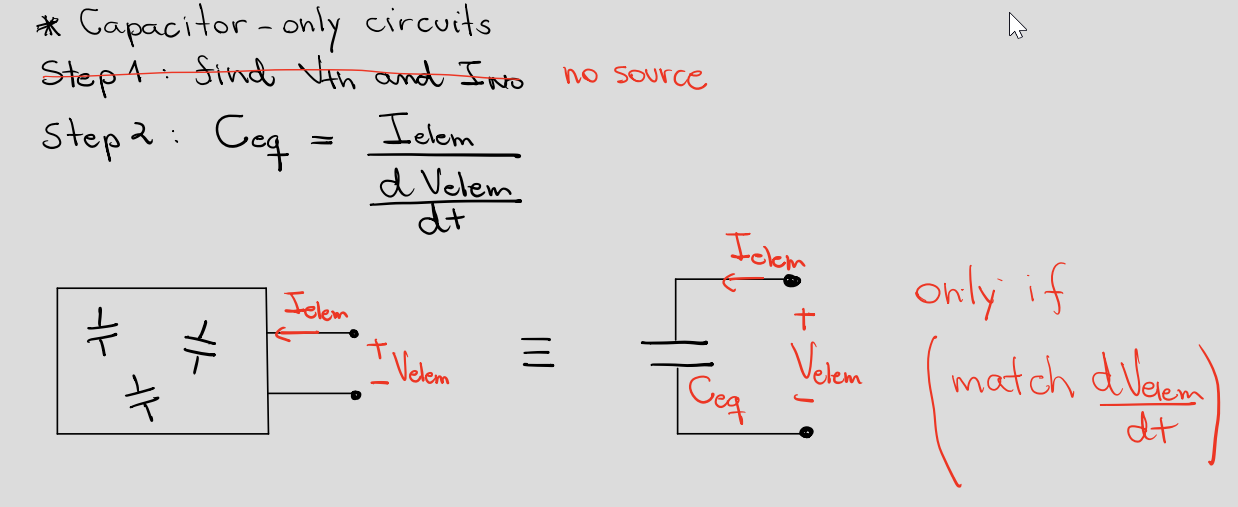 * Capacitor-only circuits
Step 1: find Vth and INO no source
Step 2: Ceq = Ielem
d Velem
dt
Ielem
+
Velem
-
≡
Ielem
+
Velem
-
Ceq
only if
(match dVelem)
dt